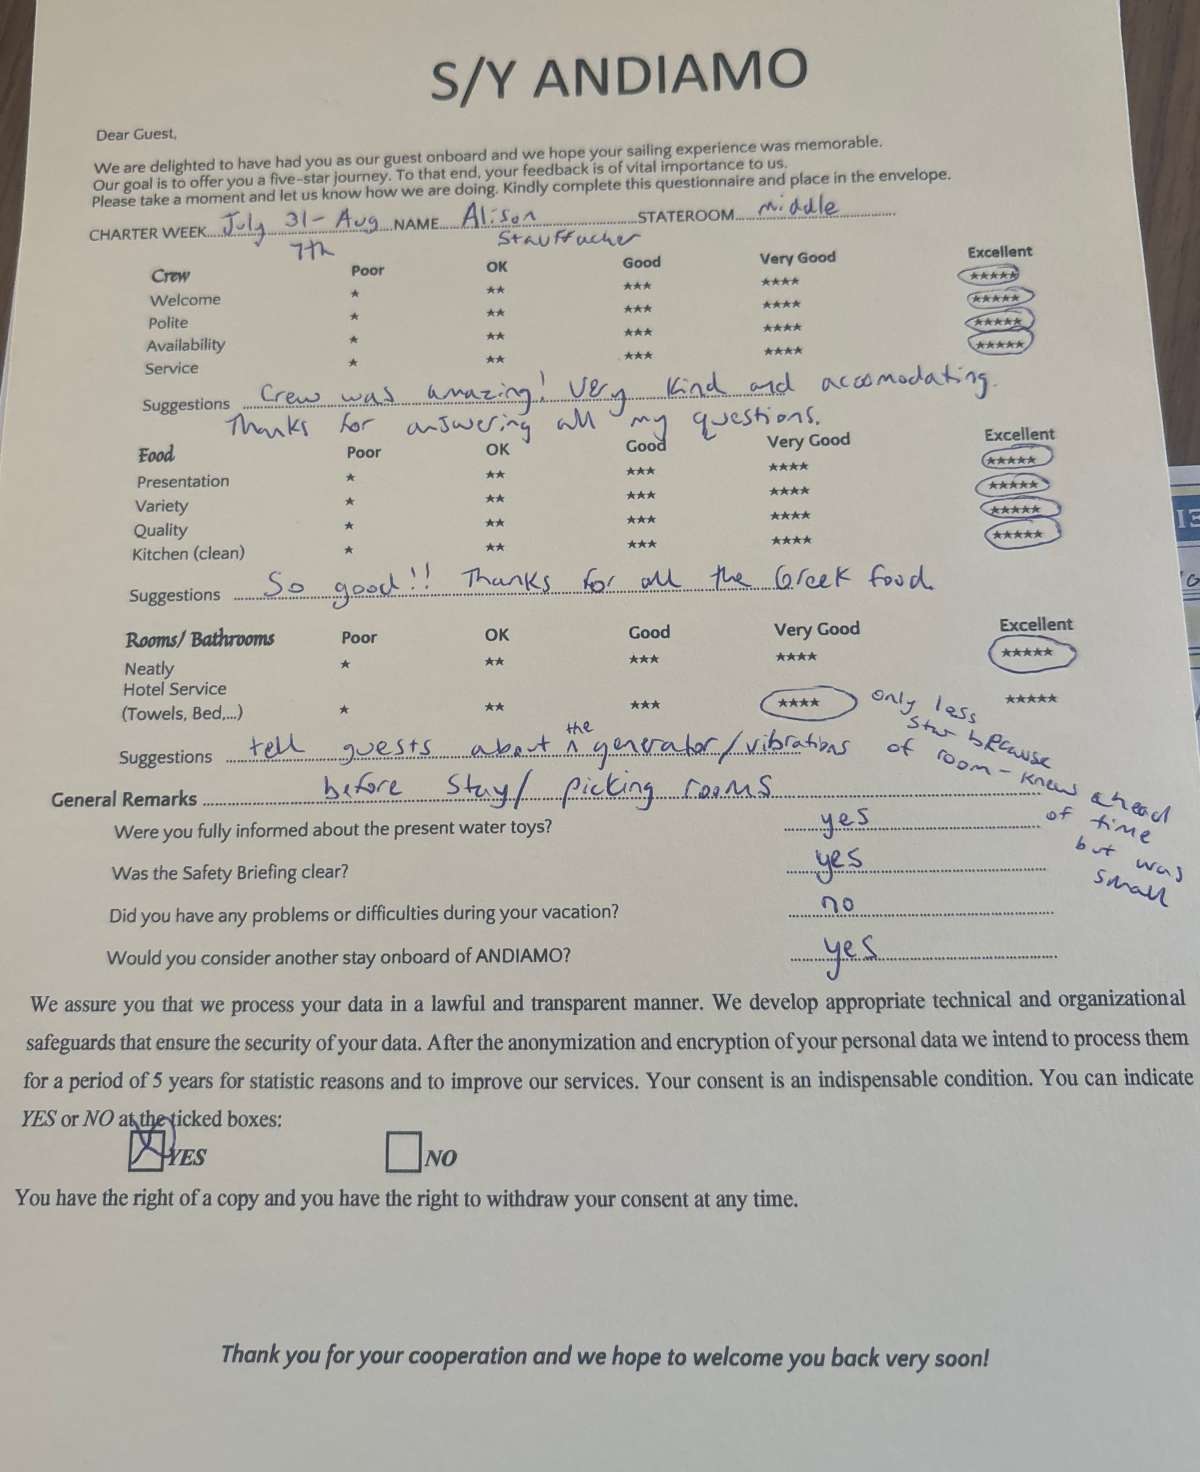 S/Y ANDIAMO
Dear Guest,
We are delighted to have had you as our guest onboard and we hope your sailing experience was memorable.
Our goal is to offer you a five-star journey. To that end, your feedback is of vital importance to us.
Please take a moment and let us know how we are doing. Kindly complete this questionnaire and place in the envelope.
CHARTER WEEK July 31 - Aug NAME Alison STATEROOM middle
7th Stauffacher
Crew Poor OK Good Very Good Excellent
Welcome * ** *** **** *****
Polite * ** *** **** *****
Availability * ** *** **** *****
Service * ** *** **** *****
Suggestions Crew was amazing! Very kind and accomodating.
Thanks for answering all my questions.
Food Poor OK Good Very Good Excellent
Presentation * ** *** **** *****
Variety * ** *** **** *****
Quality * ** *** **** *****
Kitchen (clean) * ** *** **** *****
Suggestions So good!! Thanks for all the Greek food
Rooms/ Bathrooms Poor OK Good Very Good Excellent
Neatly * ** *** **** *****
Hotel Service
(Towels, Bed,...) * ** *** **** *****
only less
star because
of room - knew ahead
of time
but was
small
Suggestions tell guests about the generator/vibrations
General Remarks before stay/ picking rooms
Were you fully informed about the present water toys? yes
Was the Safety Briefing clear? yes
Did you have any problems or difficulties during your vacation? no
Would you consider another stay onboard of ANDIAMO? yes
We assure you that we process your data in a lawful and transparent manner. We develop appropriate technical and organizational
safeguards that ensure the security of your data. After the anonymization and encryption of your personal data we intend to process them
for a period of 5 years for statistic reasons and to improve our services. Your consent is an indispensable condition. You can indicate
YES or NO at the ticked boxes:
YES NO
You have the right of a copy and you have the right to withdraw your consent at any time.
Thank you for your cooperation and we hope to welcome you back very soon!